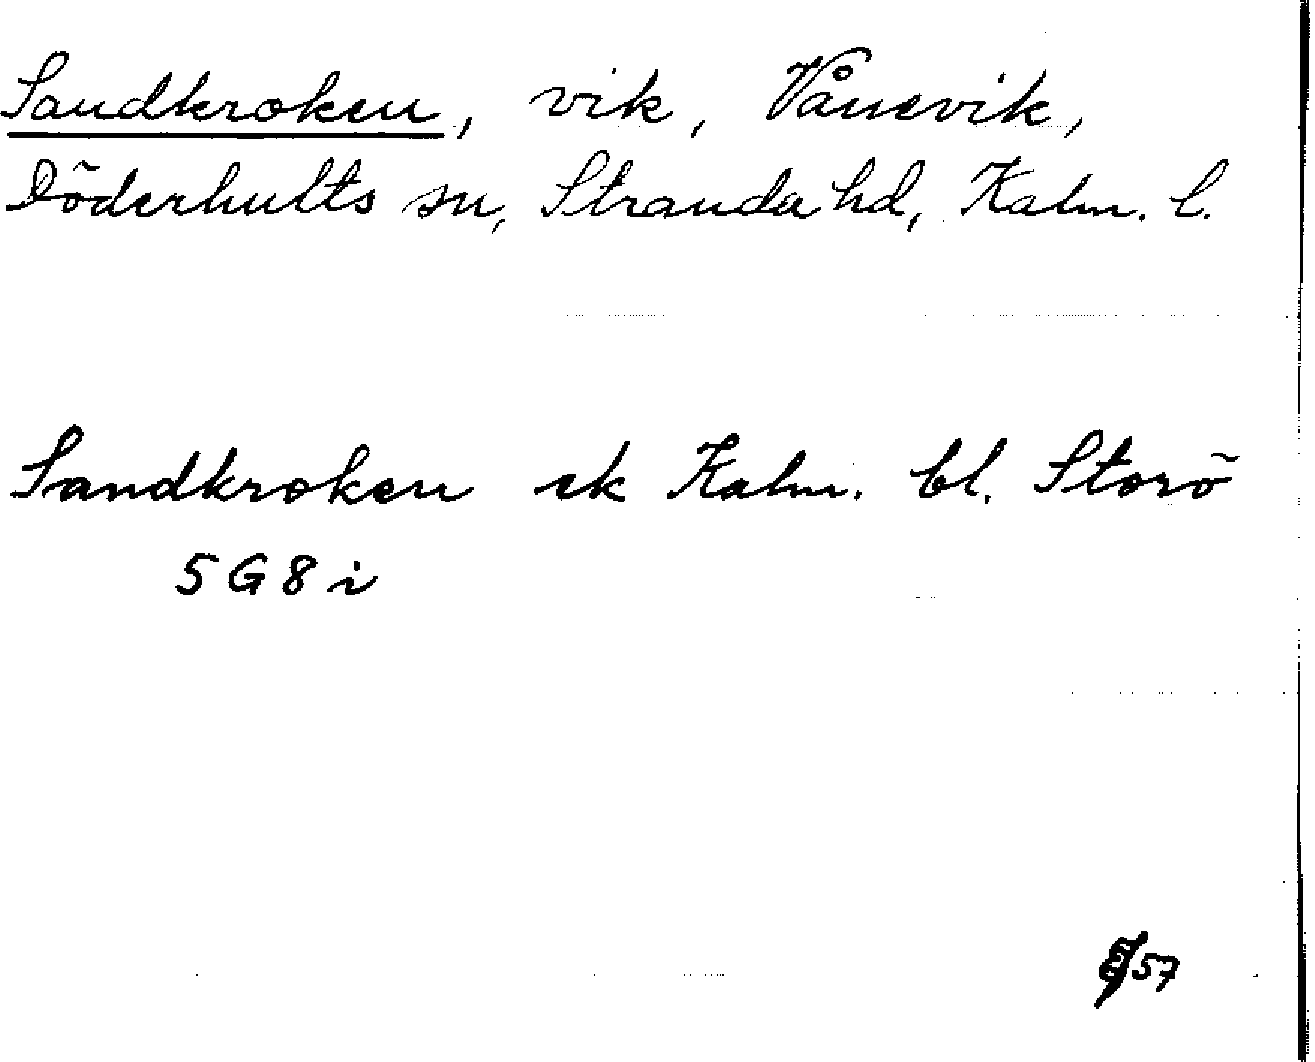 Sandkroken, vik, Vånevik,
Döderhults sn, Stranda hd, Kalm. l.
Sandkroken ek Kalm. bl. Storö
5G8i
57